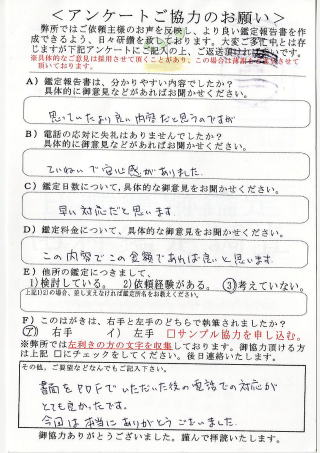 ＜アンケートご協力のお願い＞
弊所ではご依頼主様のお声を反映し、より良い鑑定報告書を作
成できるよう、日々研鑽を致しております。大変ご多忙中とは存
じますが下記アンケートにご記入の上、ご返送頂ければ幸いです。
※具体的なご意見は採用させて頂くことがあり、この場合は薄謝を進呈させて
頂いております。
A）鑑定報告書は、分かりやすい内容でしたか？
具体的に御意見などがあればお聞かせください。
思っていたより良い内容だと思うのですが
B）電話の応対に失礼はありませんでしたか？
具体的に御意見などがあればお聞かせください。
ていねいで安心感がありました
C）鑑定日数について、具体的な御意見をお聞かせください。
早い対応だと思います
D）鑑定料金について、具体的な御意見をお聞かせください。
この内容でこの金額であれば良いと思います
E）他所の鑑定につきまして、
1）検討している。 2）依頼経験がある。 ③考えていない。
上記1）2）の場合、差し支えなければ鑑定所名をお教えください。
F）このはがきは、右手と左手のどちらで執筆されましたか？
ア 右手 イ）左手 □サンプル協力を申し込む。
※弊所では左利きの方の文字を収集しております。御協力頂ける方
は上記□にチェックをしてください。後日連絡いたします。
その他、ご要望などなんでもご記入下さい。
書面をPDFでいただいた後の電話での対応が
とても良かったです。
今回は本当にありがとうございました
御協力ありがとうございました。謹んで拝読いたします。